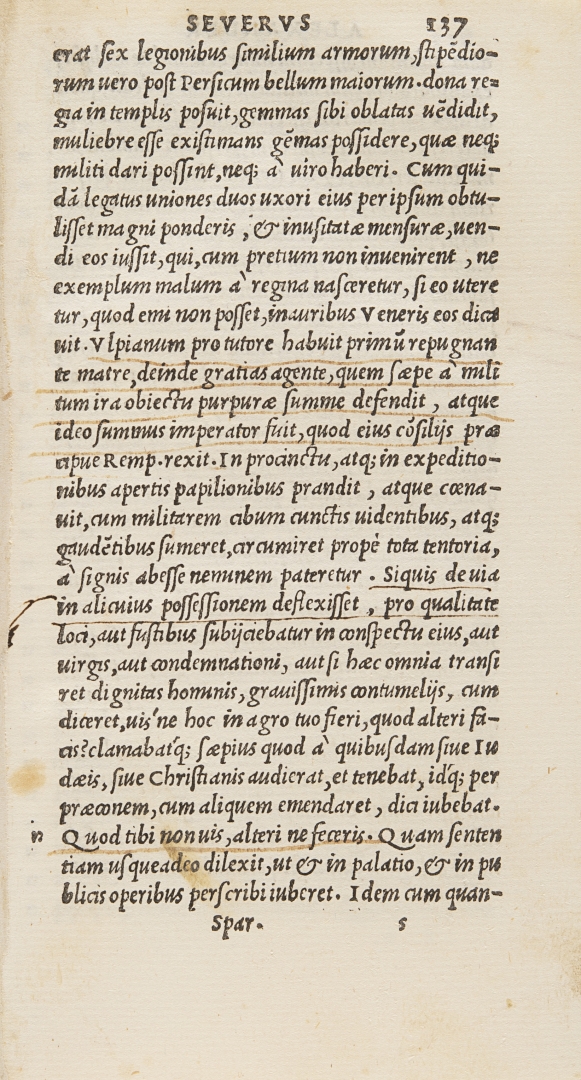 SEVERVS 137
erat sex legionibus similium armorum, stipēdio-
rum uero post Persicum bellum maiorum. dona re-
gia in templis posuit, gemmas sibi oblatas uēdidit,
muliebre esse existimans gēmas possidere, quæ neq;
militi dari possint, neq; à uiro haberi. Cum qui-
dā legatus uniones duos uxori eius per ipsum obtu-
lisset magni ponderis, & inusitatæ mensuræ, uen-
di eos iussit, qui, cum pretium non inuenirent, ne
exemplum malum à regina nasceretur, si eo utere
tur, quod emi non posset, in auribus Veneris eos dica
uit. Vlpianum pro tutore habuit primū repugnan
te matre, deinde gratias agente, quem sæpe à mili
tum ira obiectu purpuræ summe defendit, atque
ideo summus imperator fuit, quod eius cōsilijs præ
cipue Remp. rexit. In procinctu, atq; in expeditio-
nibus apertis papilionibus prandit, atque cœna-
uit, cum militarem cibum cunctis uidentibus, atq;
gaudētibus sumeret, circumiret propè tota tentoria,
à signis abesse neminem pateretur. Siquis de uia
in alicuius possessionem deflexisset, pro qualitate
loci, aut fustibus subijciebatur in conspectu eius, aut
uirgis, aut condemnationi, aut si hæc omnia transi
ret dignitas hominis, grauissimis contumelijs, cum
diceret, uis'ne hoc in agro tuo fieri, quod alteri fa-
cis? clamabatq́; sæpius quod à quibusdam siue Iu
dæis, siue Christianis audierat, et tenebat, idq́; per
præconem, cum aliquem emendaret, dici iubebat.
n Quod tibi non uis, alteri ne feceris. Quam senten
tiam usqueadeo dilexit, ut & in palatio, & in pu
blicis operibus perscribi iuberet. Idem cum quan-
Spar. s